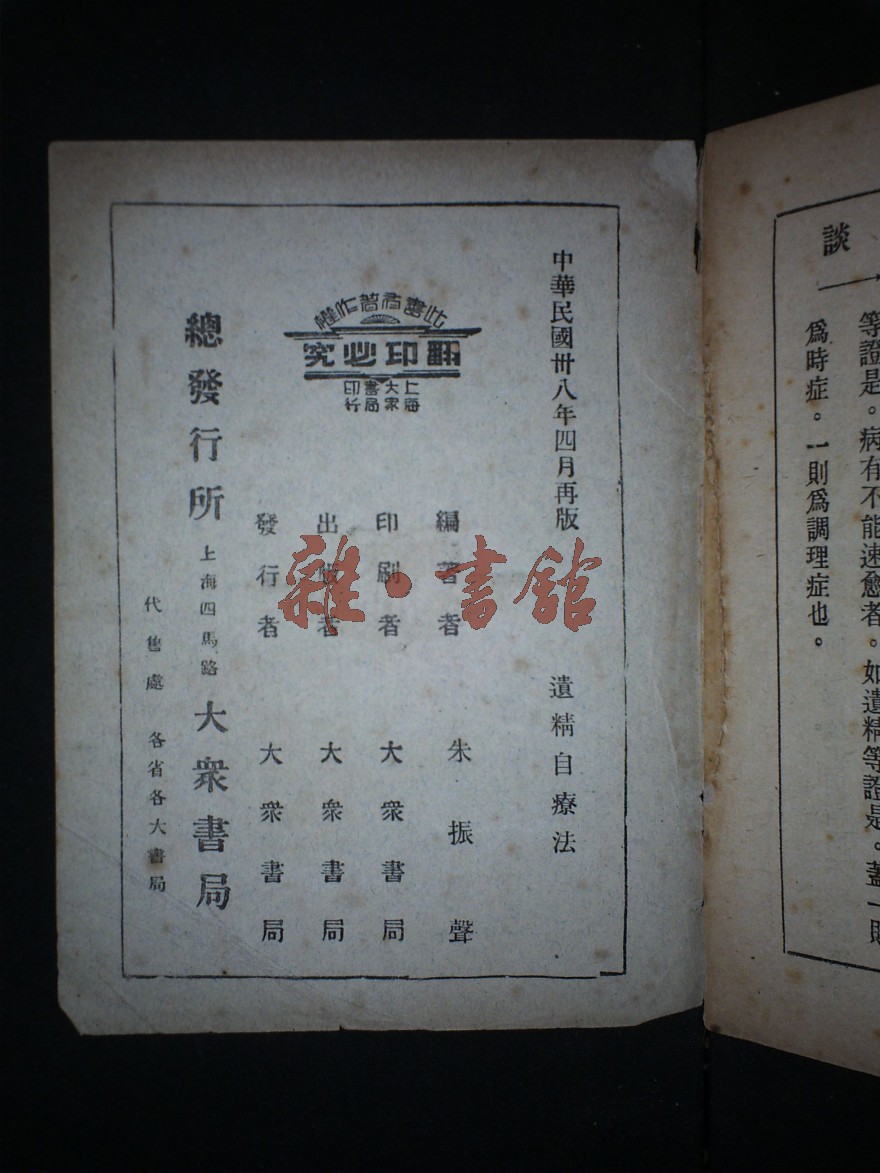 談
等證是。病有不能速愈者。如遺精等證是。蓋一則
爲時症。一則爲調理症也。
中華民國卅八年四月再版
遺精自療法
此書有著作權
翻印必究
上海
大衆
書局
印行
編著者 朱振聲
印刷者 大衆書局
出版者 大衆書局
發行者 大衆書局
總發行所 上海四馬路 大衆書局
代售處 各省各大書局
雜·書館